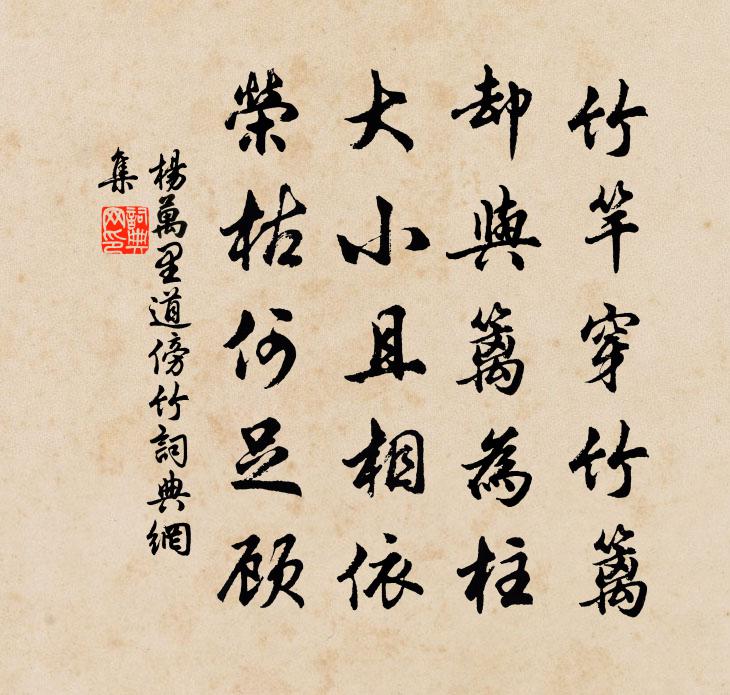 竹竿穿竹篱
却與篱為柱
大小且相依
榮枯何足顾
楊萬里道傍竹詞典網
集
詞典网印